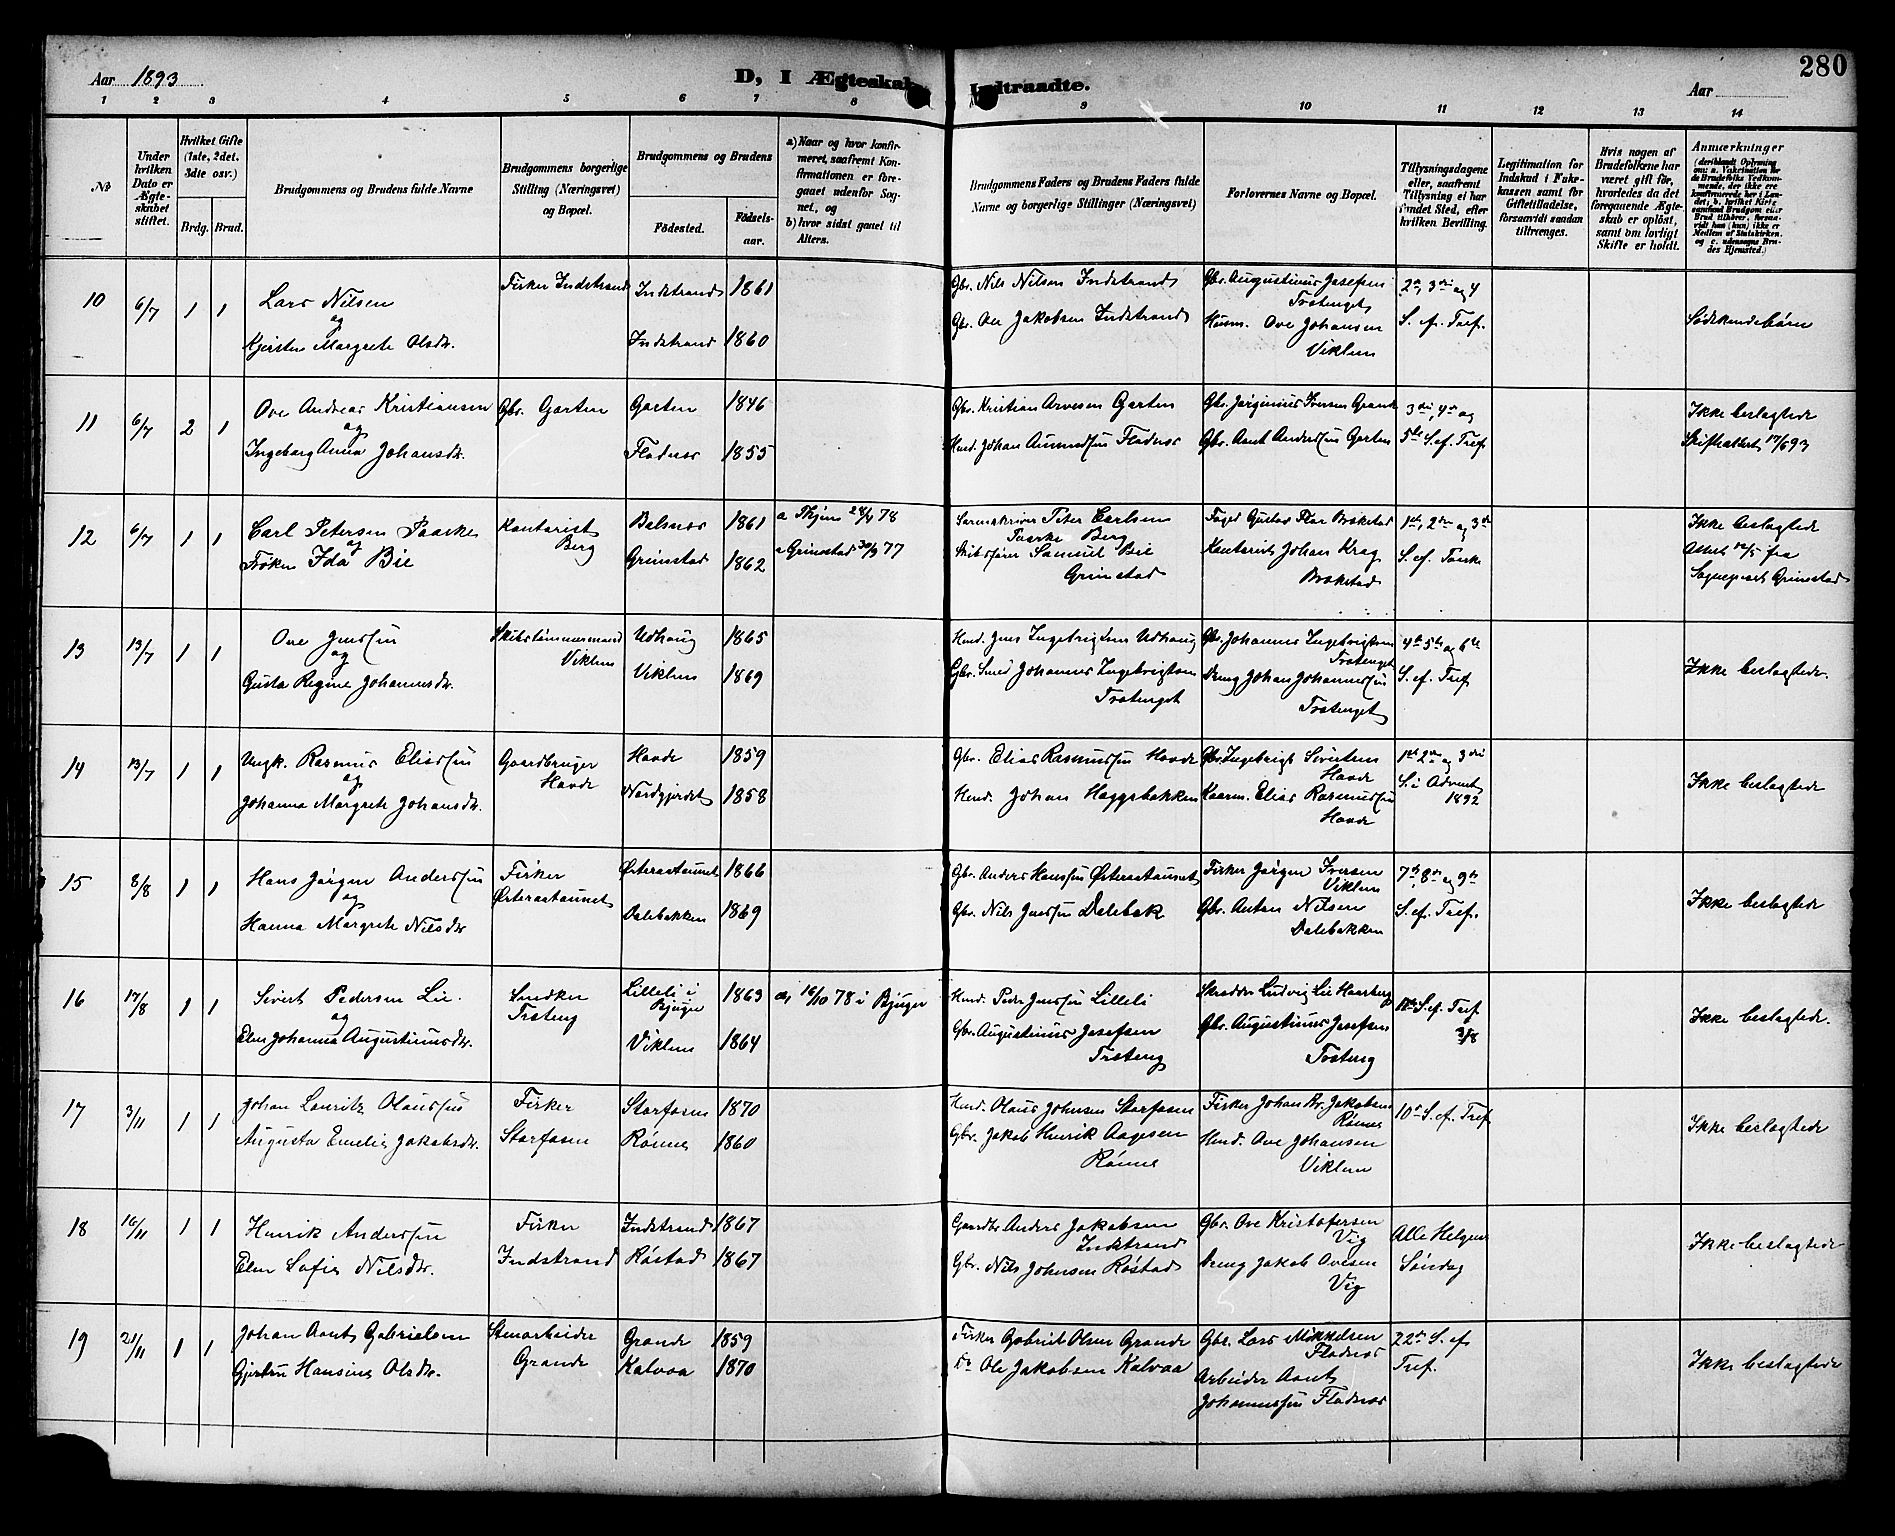 Aar 1893
D, I Ægteskab Indtraadte.
280
Aar
1 2 3 4 5 6 7 8 9 10 11 12 13 14
No
Under hvilken Dato er Ægteskabet stiftet.
Hvilket Gifte (1ste, 2det. 3die osv.)
Brdg. Brud.
Brudgommens og Brudens fulde Navne
Brudgommens borgerlige Stilling (Næringsvei) og Bopæl.
Brudgommens og Brudens
Födested.
Födselsaar.
a) Naar og hvor konfirmeret, saafremt Konfirmationen er foregaaet udenfor Sognet, og
b) hvor sidst gaaet til Alters.
Brudgommens Faders og Brudens Faders fulde Navne og borgerlige Stillinger (Næringsvei)
Forlovernes Navne og Bopæl.
Tillysningsdagene eller, saafremt Tillysning ei har fundet Sted, efter hvilken Bevilling.
Legitimation for Indskud i Enkekassen samt for Giftetilladelse, forsaavidt saadan tiltrænges.
Hvis nogen af Brudefolkene har været gift för, hvorledes da det foregaaende Ægteskab er oplöst, samt om lovligt Skifte er holdt.
Anmærkninger
10 6/7 1 1
Lars Nilsen
og
Kjersten Margrete Olsdr.
Fisker Indstrand
Indstrand 1861
Indstrand 1860
Gbr. Nils Nilsen Indstrand
Gbr. Ole Jakobsen Indstrand
Gbr. Augustinus Josefsen
Trøtenget
Husm. Ove Johansen
Viklem
2den, 3die og 4
S. ef. Tref.
Södskendebörn
11 6/7 2 1
Ove Andreas Kristiansen
og
Ingeborg Anna Johansdr.
Gbr. Garten
Garten 1846
Fladnes 1855
Gbr. Kristian Arvesen Garten
Hmd. Johan Aunundsen Fladnes
Gbr. Jørginius Iversen Grande
Gbr. Aant Anderssen Garten
3die, 4de og
5te S. ef. Tref.
Ikke beslagtede
Skifteattest 17/6 93
12 6/7 1 1
Carl Petersen Paaske
og
Frøken Ida Bie
Kontorist
Berg
Balsnes 1861
Grimstad 1862
a Thjem 28/4 78
a Grimstad 30/9 77
Sorenskriver Peter Carlsen
Paaske Berg
Skibsfører Samuel Bie
Grimstad
Foged Gustav Flor Brækstad
Kontorist Johan Krag
Brækstad
1ste, 2den og 3die
S. ef. Paaske
Ikke beslagtede
Attest 12/5 fra
Sognepræst Grimstad
13 13/7 1 1
Ove Jenssen
og
Gusta Regine Johannesdr.
Skibstømmermand
Viklem
Udhaug 1865
Viklem 1869
Hmd. Jens Ingebrigtsen Udhaug
Gbr. Smed Johannes Ingebrigtsen
Trøtenget
Gbr. Johannes Ingebrigtsen
Trøtenget
Dreng Johan Johannessen
Trøtenget
4de 5te og 6te
S. ef. Tref
Ikke beslagtede.
14 13/7 1 1
Ungk. Rasmus Eliassen
og
Johanna Margrete Johansdr.
Gaardbruger
Hovde
Hovde 1859
Nordgjerdet 1858
Gbr. Elias Rasmussen Hovde
Hmd. Johan Haggabakken
Gbr. Ingebrigt Sivertsen
Hovde
Kaarm. Elias Rasmussen
Hovde
1ste 2den og 3die
S. i Advent
1892
Ikke beslagtede
15 8/8 1 1
Hans Jørgen Anderssen
og
Hanna Margrete Nilsdr.
Fisker
Østerastaunet
Østerastaunet 1866
Dalebakken 1869
Gbr. Anders Hanssen Østerastaunet
Gbr. Nils Jenssen Dalebak
Fisker Jørgen Iversen
Viklem
Gbr. Anton Nilsen
Dalebakken
7de, 8de og 9de
S. ef. Tref.
Ikke beslagtede
16 17/8 1 1
Sivert Pedersen Lie.
og
Elen Johanna Augustinusdr.
Snedker
Trøteng
Lilleli i
Bjugn 1863
Viklem 1864
a, 16/10 78 i Bjugn
Hmd. Peder Jenssen Lilleli
Gbr. Augustinus Josefsen
Trøteng
Skrædder Ludvig Lie Haarberg
Gbr. Augustinus Josefsen
Trøteng
S. ef. Tref
Ikke beslagtede.
17 3/11 1 1
Johan Lauritz Olaussen
Augusta Emelie Jakobsdr.
Fisker
Storfosen
Storfosen 1870
Rønne 1860
Hmd. Olaus Johnsen Storfosen
Gbr. Jakob Henrik Aagesen
Rønne
Fisker Johan Br. Jakobsen
Rønne
Hmd. Ove Johansen
Viklem
10de S. ef. Tref
Ikke beslagtede
18 16/11 1 1
Henrik Anderssen
Elen Sofie Nilsdr.
Fisker
Indstrand
Indstrand 1867
Røstad 1867
Gaardbr. Anders Jakobsen
Indstrand
Gbr. Nils Johnsen Røstad
Gbr. Ove Kristofersen
Vig
Dreng Jakob Ovesen
Vig
Alle Helgens
Søndag
Ikke beslagtede
19 21/11 1 1
Johan Aant Gabrielsen
Gjertru Hansine Olsdr.
Stenarbeider
Grande
Grande 1859
Kalvaa 1870
Fisker Gabriel Olsen Grande
Do Ole Jakobsen Kalvaa
Gbr. Lars Mikkelsen
Fladnes
Arbeider Aant
Johannessen Fladnes
22de S. ef
Tref.
Ikke beslagtede